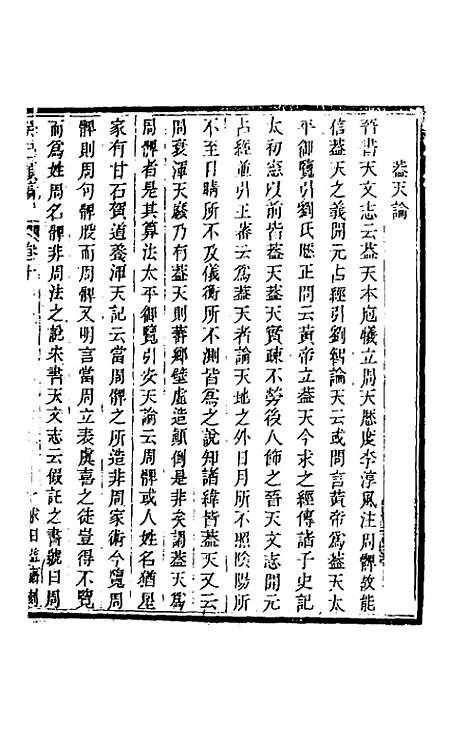 蓋天論
晉書天文志云蓋天本庖犧立周天歷度李淳風注周髀敘能
信蓋天之義開元占經引劉智論天云或問言黃帝爲蓋天太
平御覽引劉氏歷正問云黃帝立蓋天今求之經傳諸子史記
太初憲以前皆蓋天蓋天質疎不勞後人飾之晉天文志開元
占經竝引王蕃云爲蓋天者論天地之外日月所不照陰陽所
不至日晴所不及儀術所不測皆爲之說知諸緯皆蓋天又云
周衰渾天廢乃有蓋天則蕃鄉壁虛造顚倒是非矣謂蓋天爲
周髀者是其算法太平御覽引安天論云周髀或人姓名猶星
家有甘石賀道養渾天記云當周髀之所造非周家術今覽周
髀則周句髀股而周髀又明言當周立表虞喜之徒豈得不覽
而爲姓周名髀非周法之說宋書天文志云假託之書號曰周
卷十
求日益齋刻